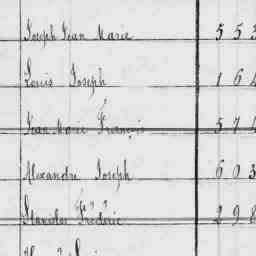 Joseph Jean Marie 5 5 3
Louis Joseph 1 6 4
Jean Marie François 5 7 4
Alexandre Joseph 6 0 3
Stanislas Fréderic 2 9 8